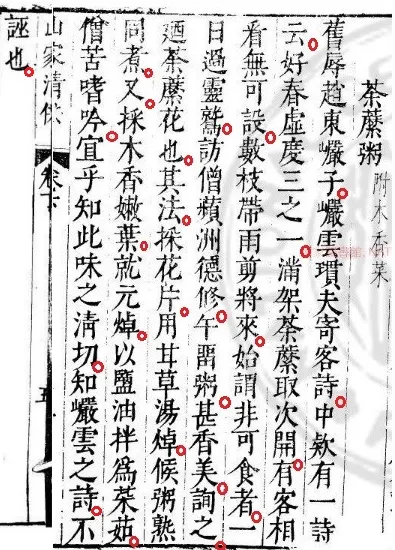 荼蘼粥 附木香菜
舊辱趙東巖子巖雲瓆夫寄客詩中欵有一詩
云好春虛度三之一滿架荼蘼取次開有客相
看無可設數枝帶雨剪將來始謂非可食者一
日過靈鷲訪僧蘋洲德修午畱粥甚香美詢之
廼荼蘼花也其法採花片用甘草湯焯候粥熟
同煮又採木香嫩葉就元焯以鹽油拌爲菜茹
僧苦嗜吟宜乎知此味之清切知巖雲之詩不
山家清供 卷下 五
誣也